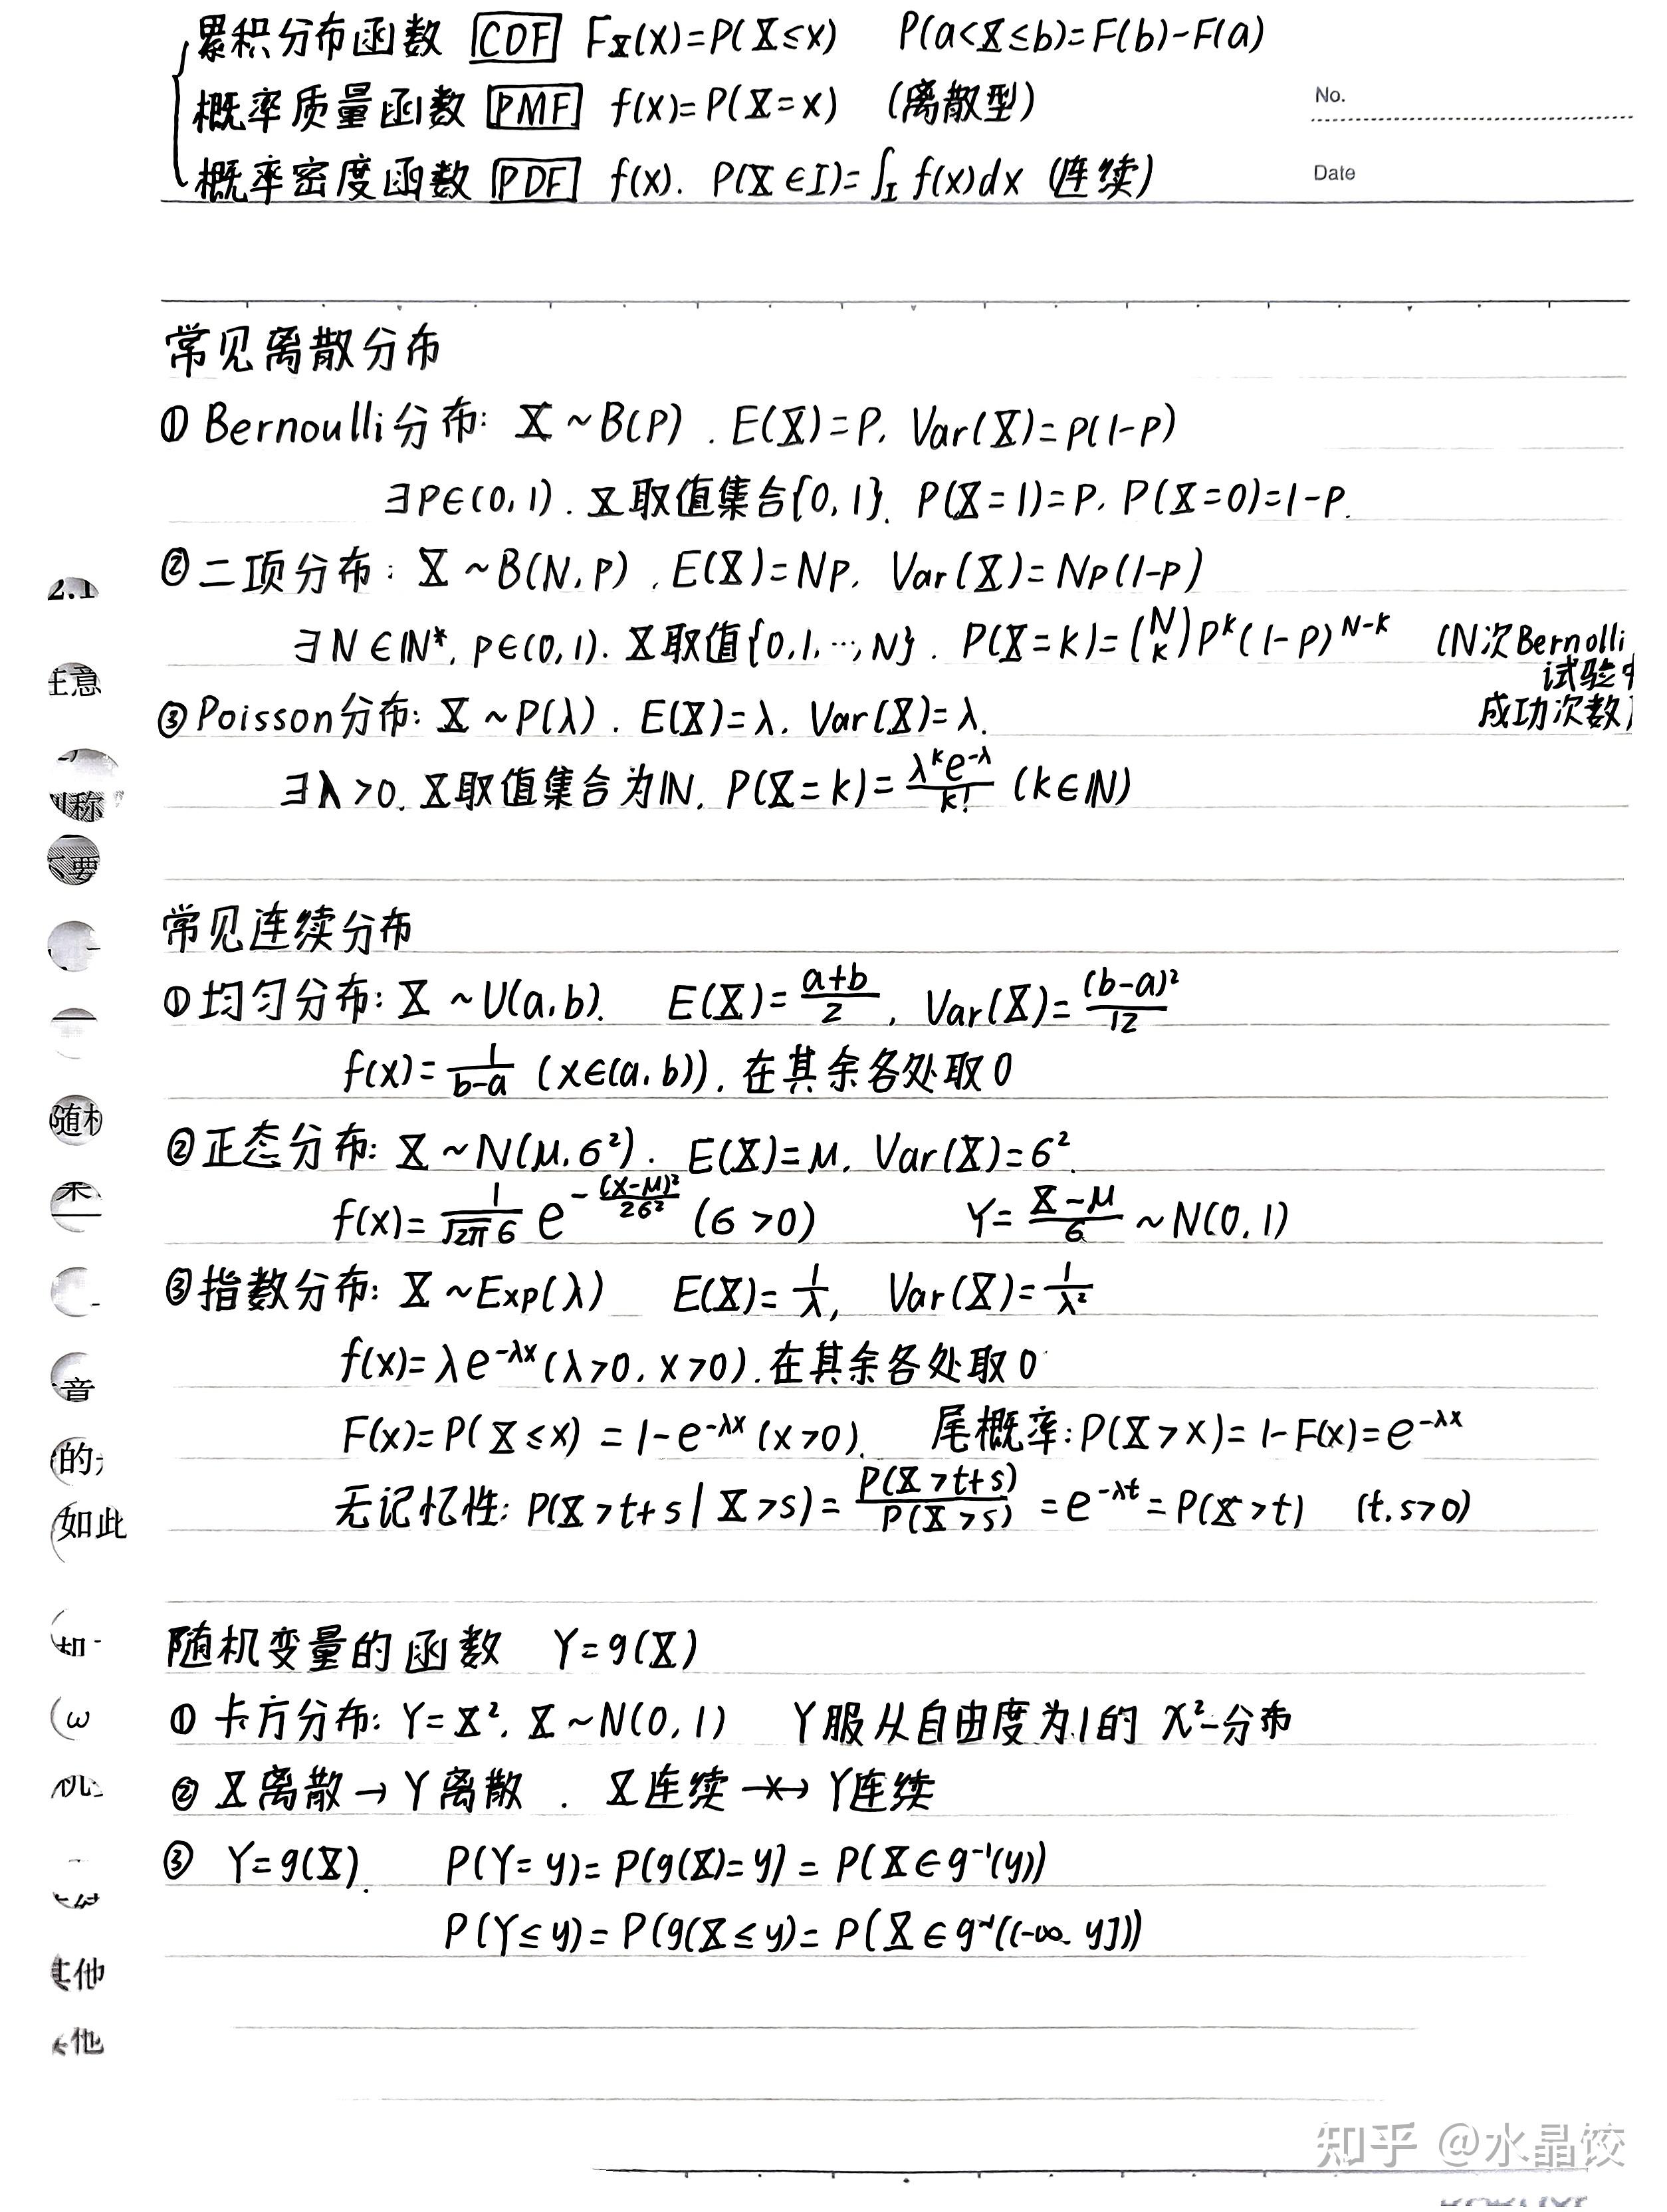 累积分布函数 CDF F_X(x)=P(X≤x) P(a<X≤b)=F(b)-F(a)
概率质量函数 PMF f(x)=P(X=x) (离散型)
No.
概率密度函数 PDF f(x). P(X∈I)=∫_I f(x)dx (连续)
Date
常见离散分布
① Bernoulli分布: X~B(P). E(X)=P, Var(X)=P(1-P)
∃P∈(0,1). X取值集合{0,1}. P(X=1)=P, P(X=0)=1-P.
② 二项分布: X~B(N,P). E(X)=NP, Var(X)=NP(1-P)
∃N∈ℕ*, P∈(0,1). X取值{0,1,…,N}. P(X=k)=(N k)P^k(1-P)^{N-k} (N次Bernolli
试验中
成功次数)
③ Poisson分布: X~P(λ). E(X)=λ, Var(X)=λ.
∃λ>0. X取值集合为ℕ. P(X=k)=λ^k e^{-λ}/k! (k∈ℕ)
常见连续分布
① 均匀分布: X~U(a,b). E(X)=(a+b)/2, Var(X)=(b-a)²/12
f(x)=1/(b-a) (x∈(a,b)). 在其余各处取0
② 正态分布: X~N(μ,σ²). E(X)=μ, Var(X)=σ².
f(x)=1/(√2π σ) e^{-(x-μ)²/2σ²} (σ>0) Y=(X-μ)/σ ~N(0,1)
③ 指数分布: X~Exp(λ) E(X)=1/λ, Var(X)=1/λ²
f(x)=λe^{-λx} (λ>0, x>0). 在其余各处取0
F(x)=P(X≤x)=1-e^{-λx} (x>0). 尾概率: P(X>x)=1-F(x)=e^{-λx}
无记忆性: P(X>t+s|X>s)=P(X>t+s)/P(X>s)=e^{-λt}=P(X>t) (t,s>0)
随机变量的函数 Y=g(X)
① 卡方分布: Y=X², X~N(0,1) Y服从自由度为1的 χ²-分布
② X离散→Y离散. X连续↛Y连续
③ Y=g(X). P(Y=y)=P(g(X)=y)=P(X∈g⁻¹(y))
P(Y≤y)=P(g(X≤y)=P(X∈g⁻¹((-∞,y]))
2.1
注意
称
要
随机
音
的
如此
ω
其他
他
知乎 @水晶饺